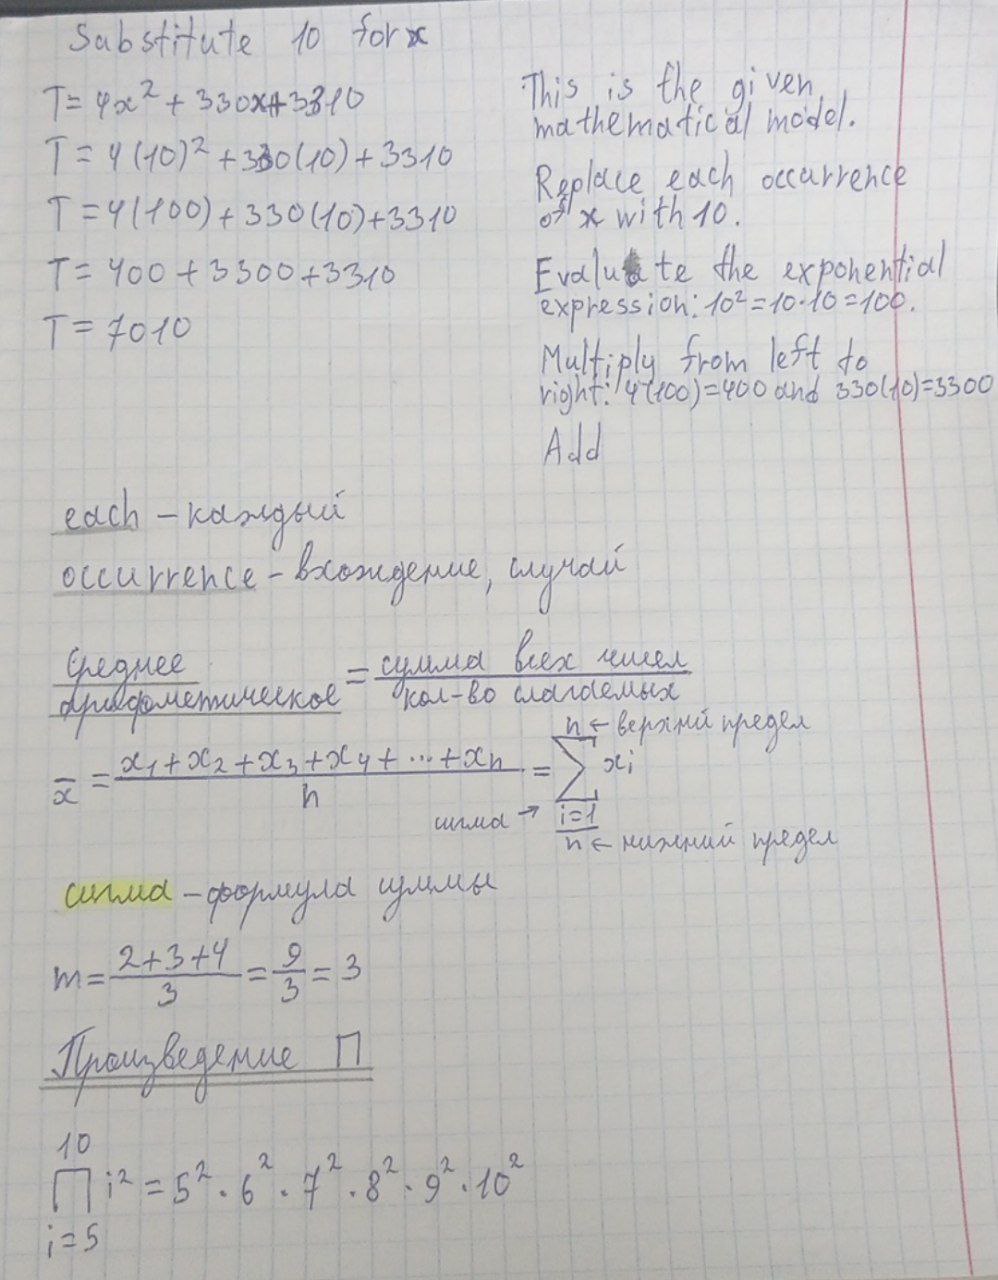 Substitute 10 for x
T = 4x² + 330x + 3310
T = 4(10)² + 330(10) + 3310
T = 4(100) + 330(10) + 3310
T = 400 + 3300 + 3310
T = 7010
This is the given
mathematical model.
Replace each occurrence
of x with 10.
Evaluate the exponential
expression: 10² = 10·10 = 100.
Multiply from left to
right: 4(100) = 400 and 330(10) = 3300
Add
each – каждый
occurrence – вхождение, случай
Среднее арифметическое = сумма всех чисел / кол-во слагаемых
n ← верхний предел
x̄ = (x₁ + x₂ + x₃ + x₄ + ... + xₙ) / n = ∑ xᵢ
сигма → i=1
n ← нижний предел
сигма – формула суммы
m = (2+3+4) / 3 = 9/3 = 3
Произведение П
10
∏ i² = 5² · 6² · 7² · 8² · 9² · 10²
i = 5